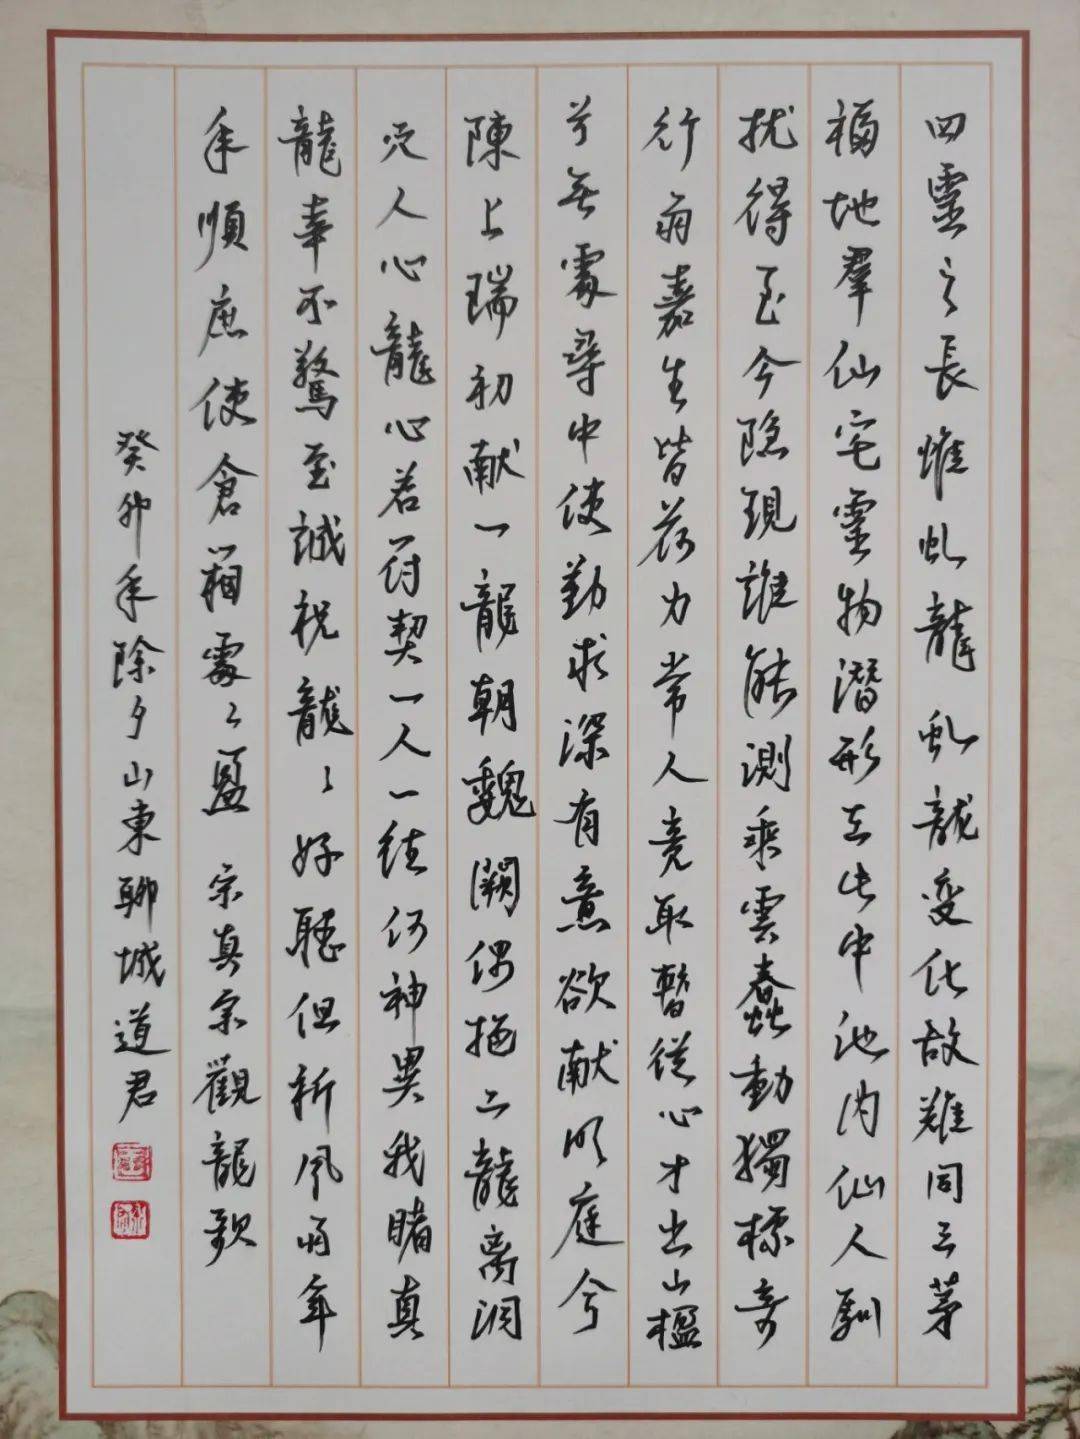 四靈之長惟虬龍虬龍變化故難同三茅
福地羣仙宅靈物潛形在此中池內仙人馴
擾得至今隐現誰能測乘雲蠢動獨標奇
行雨嘉生皆荷力常人竞取暫從心才出山楹
兮無處尋中使勤求深有意欲献明庭兮
陳上瑞初献一龍朝魏闕偶抱二龍离洞
穴人心龍心若符契一人一往何神異我睹真
龍幸不驚至誠祝龍〻好聽但祈風雨年
年順庶使倉箱處〻盈 宋真宗觀龍歌
癸卯年除夕山東聊城道君